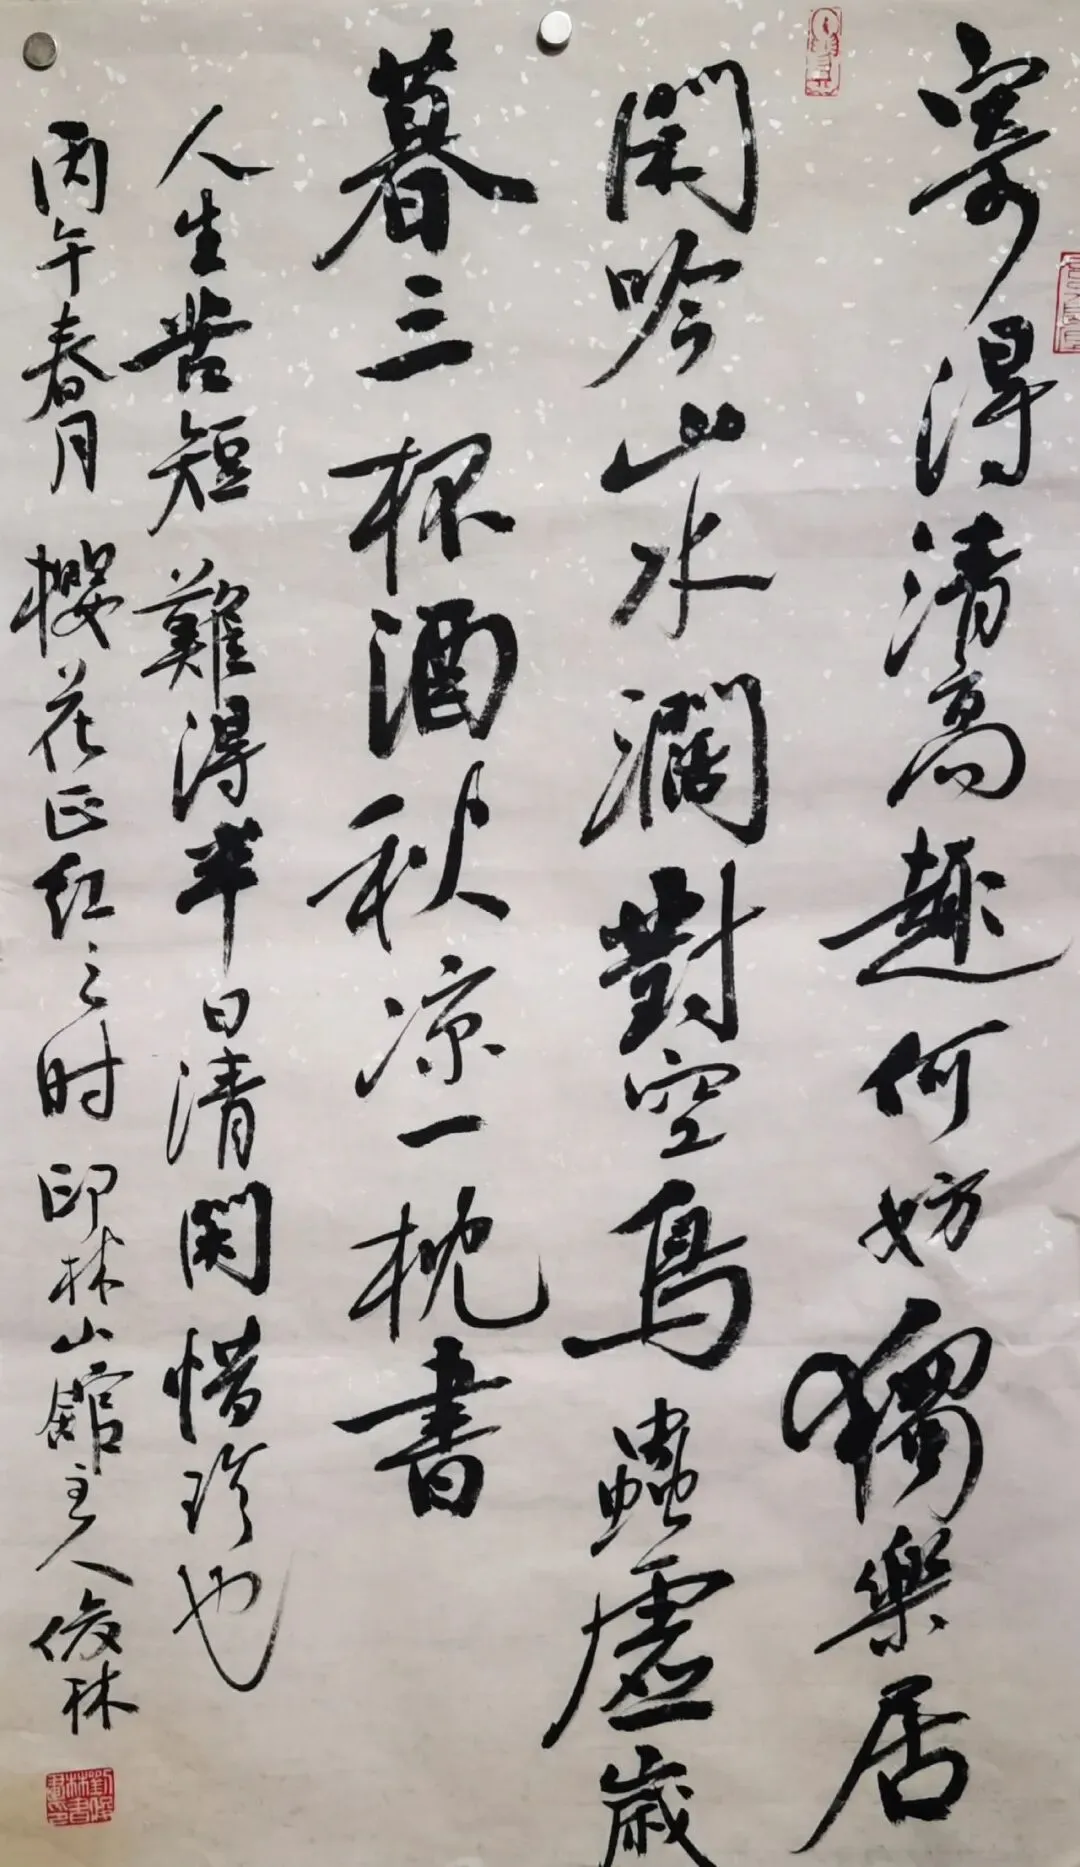 寄得清高趣何妨獨樂居
閑吟山水濶對空鳥蟲虛歲
暮三杯酒秋凉一枕書
人生苦短難得半日清閑惜珍也
丙午春月櫻花正红之时印林山館主人俊林